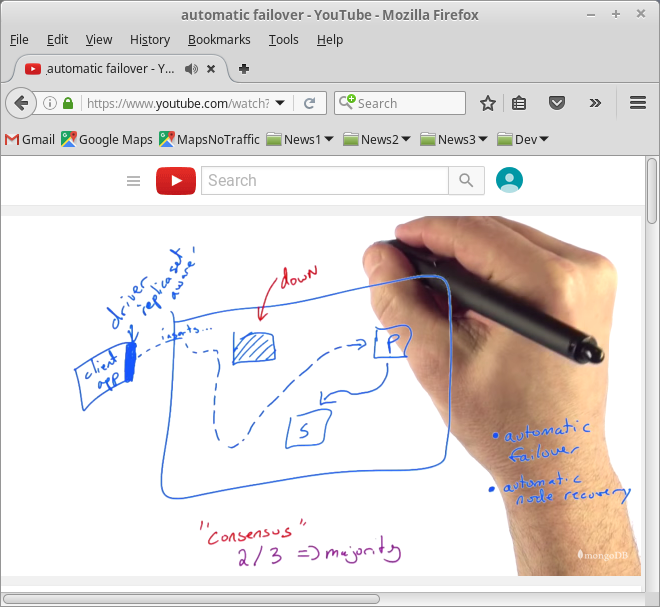 automatic failover - YouTube - Mozilla Firefox
File Edit View History Bookmarks Tools Help
automatic failover - Y...
https://www.youtube.com/watch?
Search
Gmail Google Maps MapsNoTraffic News1 News2 News3 Dev
Search
driver
replica set
aware
down
inserts...
client
app
P
S
• automatic
failover
• automatic
node recovery
"Consensus"
2/3 => majority
mongoDB